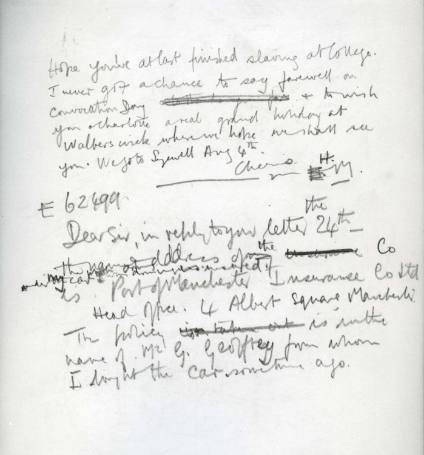 Hope you've at last finished slaving at College.
I never got a chance to say farewell on
Convocation Day & to wish
you & Charlotte a real grand holiday at
where we hope we shall see
you. We go to Aug 4th.
Cheerio
H.
M.
E 62499.
Dear Sir, in reply to your letter the 24th
the name & address of the Co
is Port of Manchester Insurance Co Ltd
Head Office. 4 Albert Square Manchester
The policy is in the
name of Mr G. Geoffrey from whom
I bought the car some time ago.